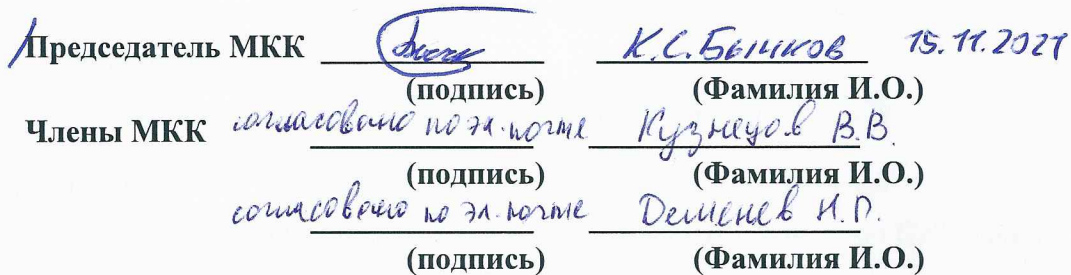 Председатель МКК К.С. Бычков 15.11.2021
(подпись) (Фамилия И.О.)
Члены МКК согласовано по эл. почте Кузнецов В.В.
(подпись) (Фамилия И.О.)
согласовано по эл. почте Деменев Н.П.
(подпись) (Фамилия И.О.)